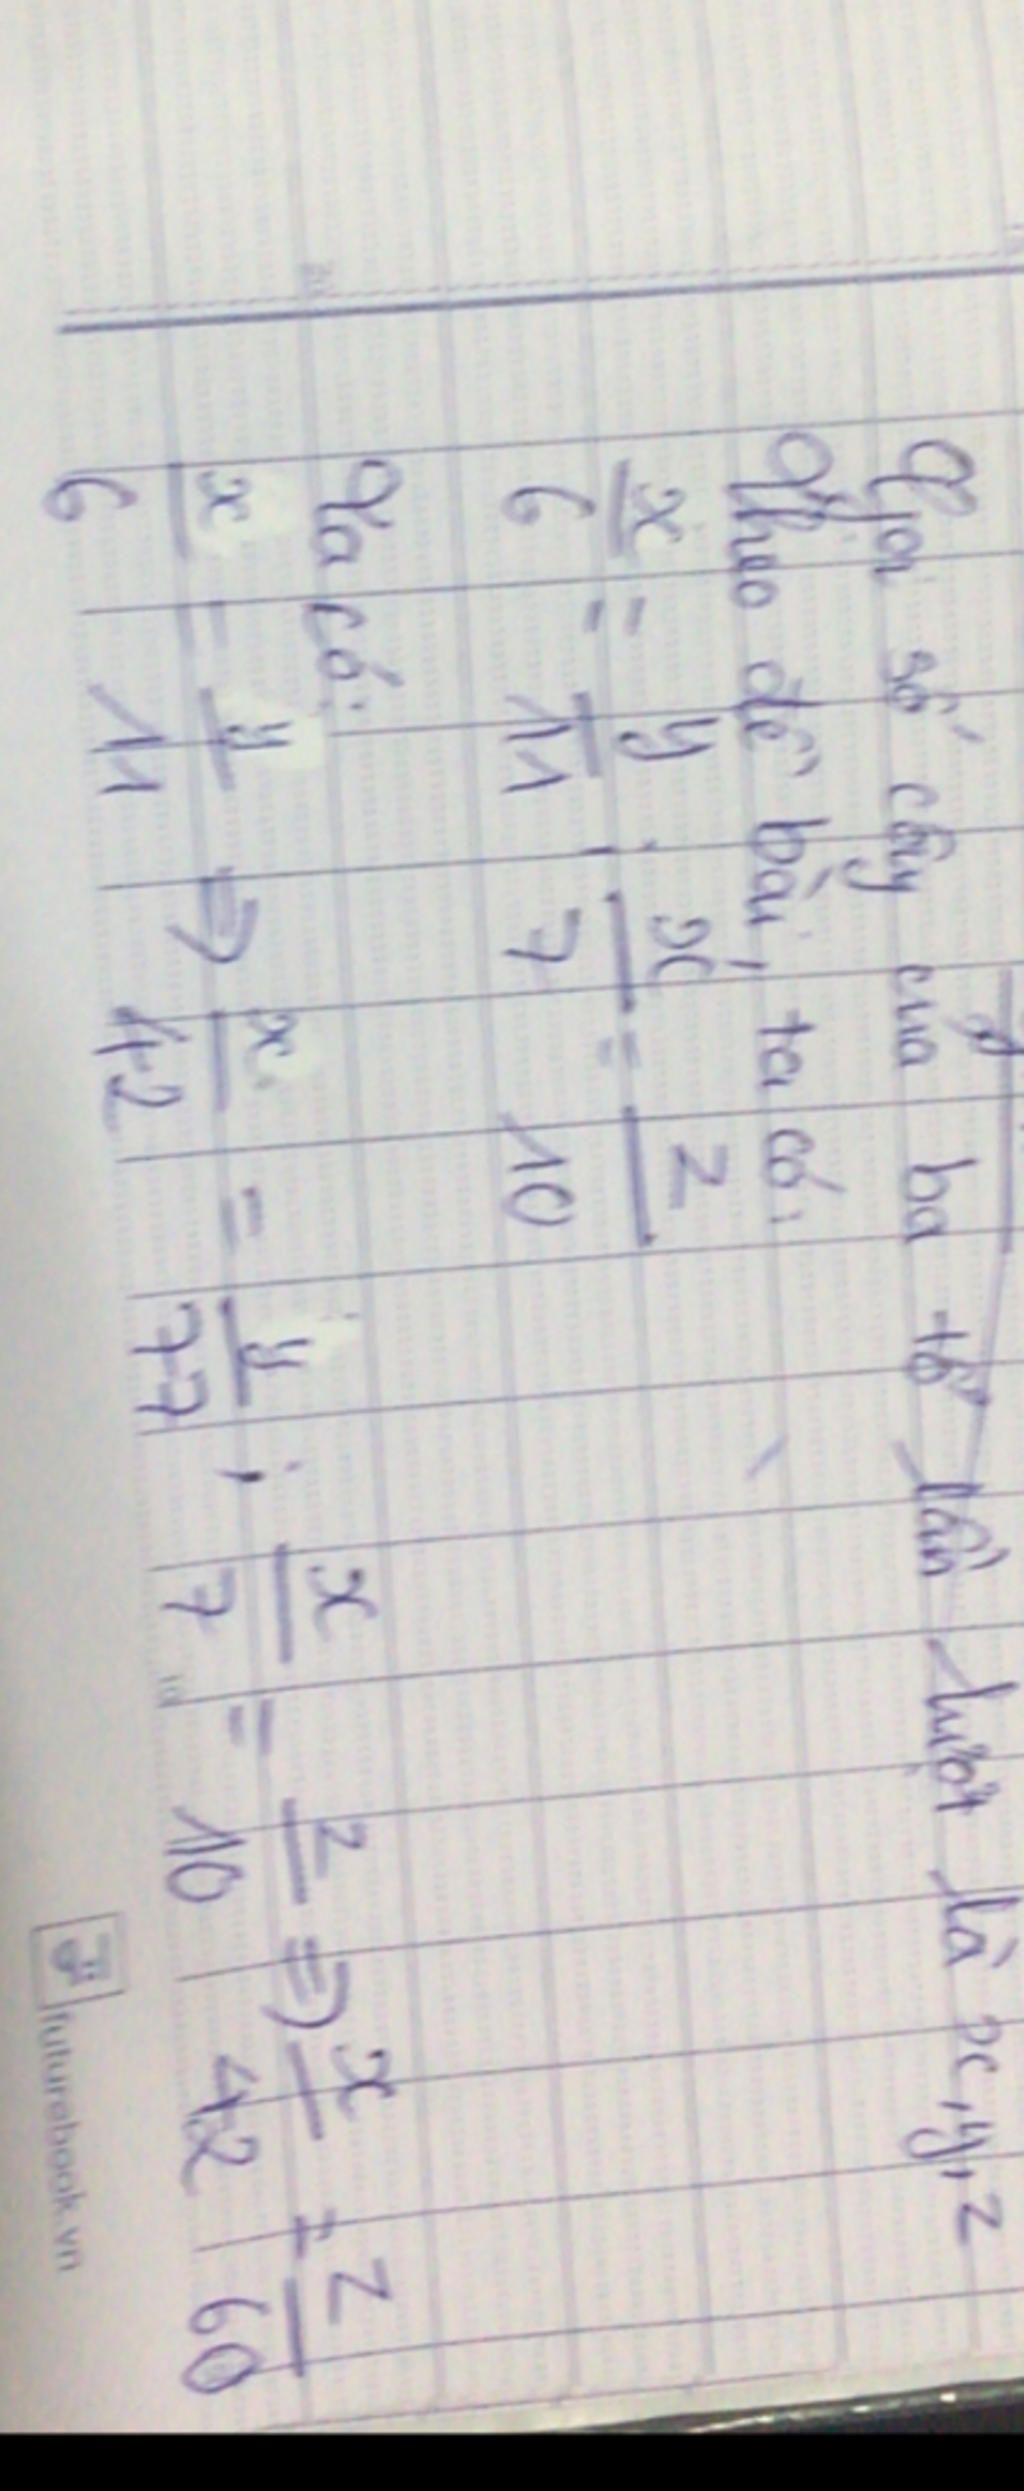 Gọi số cây của ba tổ lần lượt là x, y, z
Theo đề bài, ta có:
x/6 = y/11 ; x/7 = z/10
Ta có:
x/6 = y/11 => x/42 = y/77 ; x/7 = z/10 => x/42 = z/60
futurebook.vn